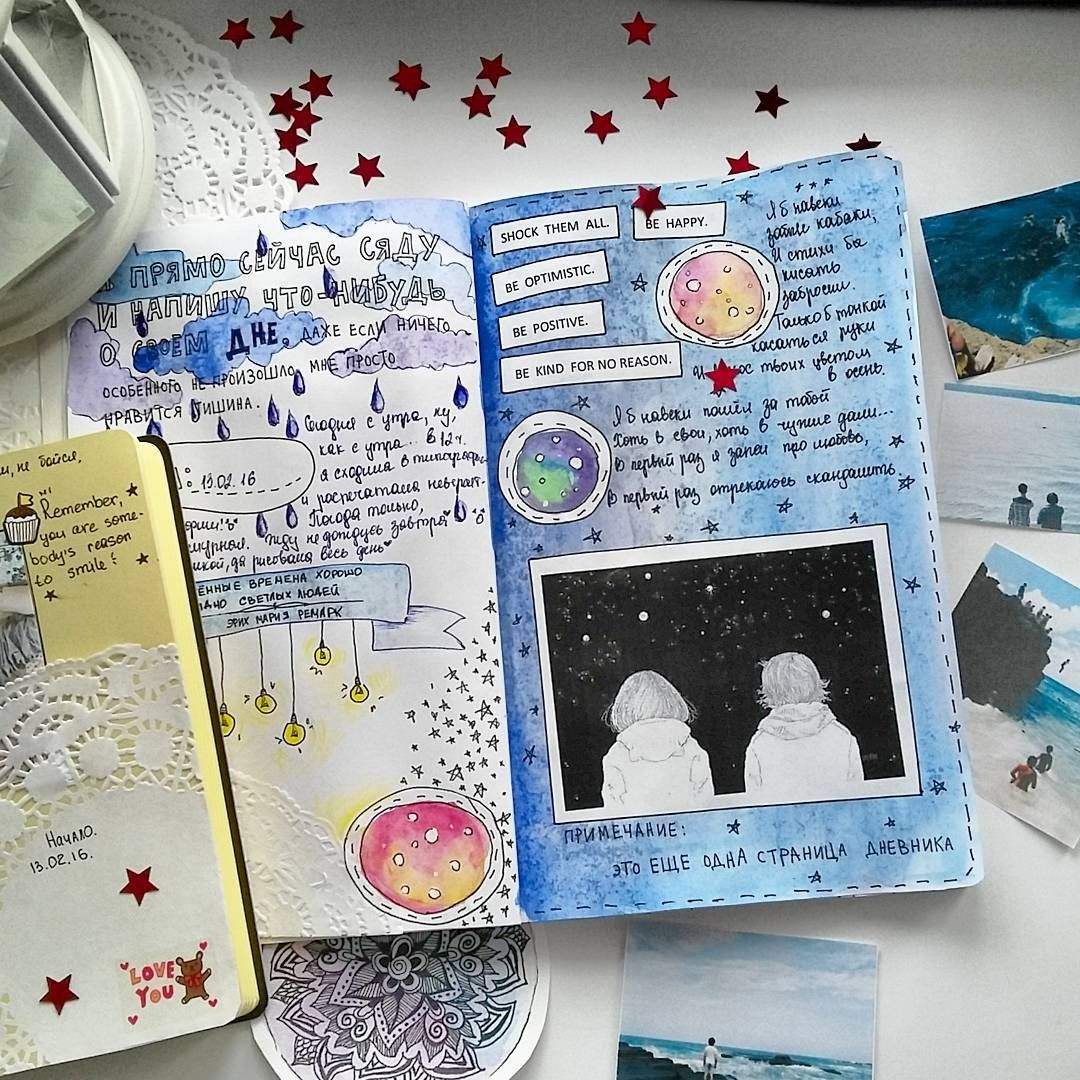 ПРЯМО СЕЙЧАС СЯДУ
И НАПИШУ ЧТО-НИБУДЬ
О СВОЕМ ДНЕ. ДАЖЕ ЕСЛИ НИЧЕГО
ОСОБЕННОГО НЕ ПРОИЗОШЛО, МНЕ ПРОСТО
НРАВИТСЯ ТИШИНА.
13.02.16
Сегодня с утра, ну,
как с утра... в 12 ч.
я сходила в типографию
и распечатала
Погода только,
Жду не дождусь завтра
да рисовала весь день
ВРЕМЕНА ХОРОШО
СВЕТЛЫХ ЛЮДЕЙ
ЭРИХ МАРИЯ РЕМАРК
SHOCK THEM ALL.
BE HAPPY.
BE OPTIMISTIC.
BE POSITIVE.
BE KIND FOR NO REASON.
Я б навеки
забыл кабаки,
И стихи бы
писать
забросил.
Только б тонкой
касаться руки
и волос твоих цветом
в осень.
Я б навеки пошёл за тобой
Хоть в свои, хоть в чужие дали...
В первый раз я запел про любовь,
В первый раз отрекаюсь скандалить.
ПРИМЕЧАНИЕ:
ЭТО ЕЩЕ ОДНА СТРАНИЦА ДНЕВНИКА
не бойся,
Hi
Remember,
you are some-
body's reason
to smile!
Начало.
13.02.16.
LOVE
YOU